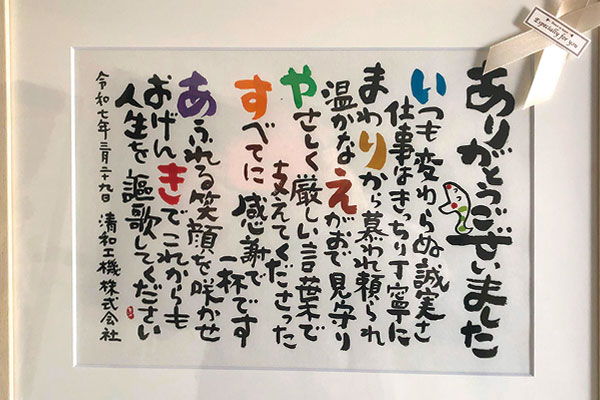 ありがとうございました
いつも変わらぬ誠実さ
仕事はきっちり丁寧に
まわりから慕われ頼られ
温かなえがおで見守り
やさしく厳しい言葉で
支えてくださった
すべてに感謝で
一杯です
あふれる笑顔を咲かせ
おげんきでこれからも
人生を謳歌してください
令和七年三月二十九日 清和工機株式会社
Especially for you